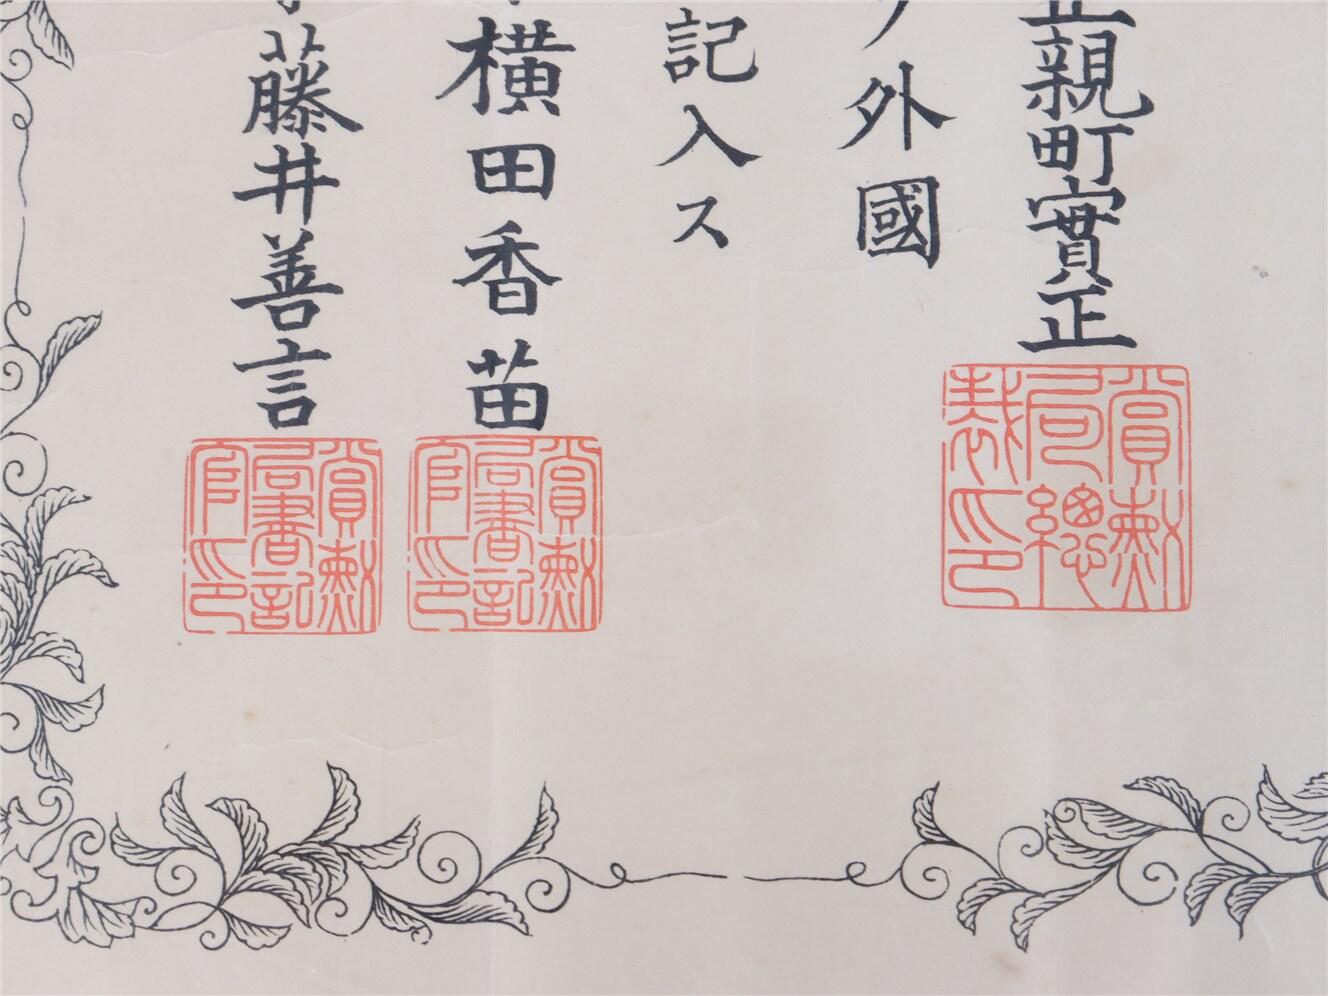 正親町實正
賞勲
局總
裁印
ノ外國
記入ス
横田香苗
賞勲
局書記
官印
藤井善言
賞勲
局書記
官印